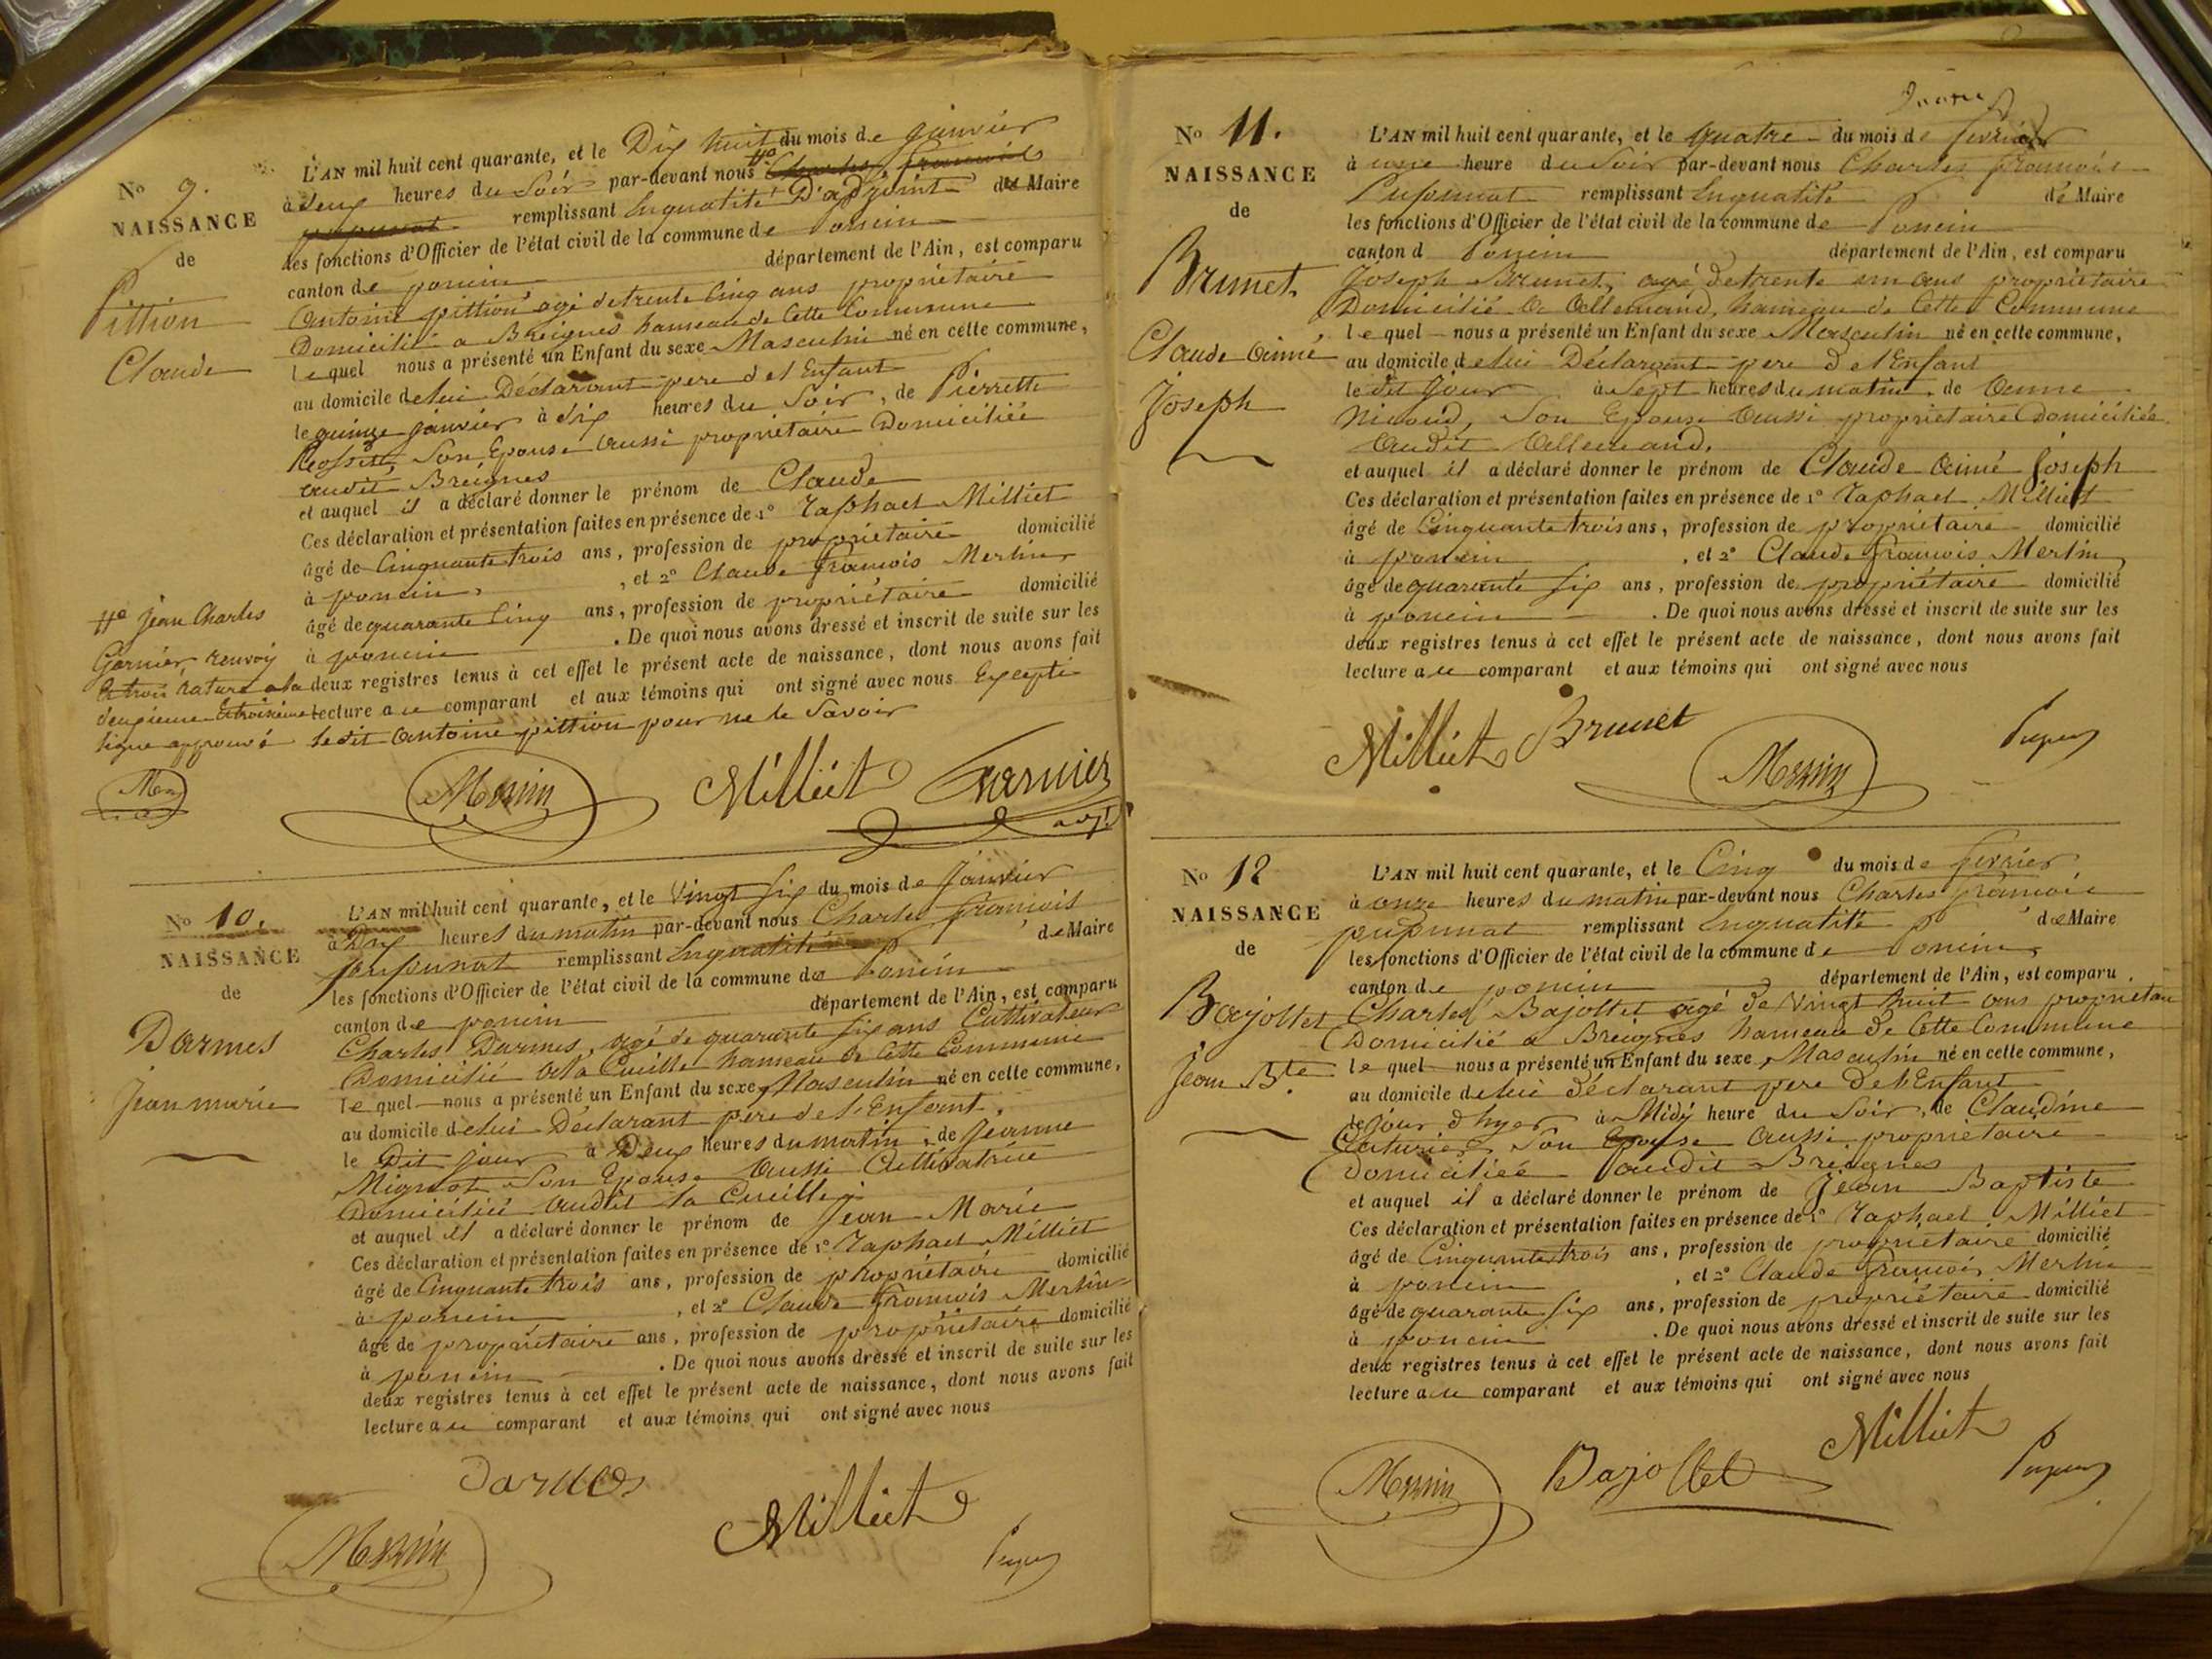 No 9.
NAISSANCE
de
Pittion
Claude
L'AN mil huit cent quarante, et le Dix huit du mois de janvier
à deux heures du Soir par-devant nous Charles françois
remplissant Enqualité D'adjoint de Maire
les fonctions d'Officier de l'état civil de la commune de Poncin
canton de poncin département de l'Ain, est comparu
Antoine pittion agé de trente Cinq ans propriétaire
Domicilié a Breignes hameau de Cette Commune
lequel nous a présenté un Enfant du sexe Masculin né en cette commune,
au domicile de lui Déclarant pere del Enfant
le quinze janvier à six heures du Soir, de Pierrette
Son Epouse aussi propriétaire Domiciliée
audit Breignes
et auquel il a déclaré donner le prénom de Claude
Ces déclaration et présentation faites en présence de 1° Raphael Milliet
âgé de Cinquante trois ans, profession de propriétaire domicilié
à poncin, et 2° Claude françois Merlin
âgé de quarante Cinq ans, profession de propriétaire domicilié
à poncin . De quoi nous avons dressé et inscrit de suite sur les
deux registres tenus à cet effet le présent acte de naissance, dont nous avons fait
lecture au comparant et aux témoins qui ont signé avec nous Excepté
ledit Antoine pittion pour ne le Savoir
Jean Charles
Garnier renvoy
et trois rature a la
deuxieme et troisieme
ligne approuvé
Merlin Milliet Garnier
No 10.
NAISSANCE
de
Darmes
Jean marie
L'AN mil huit cent quarante, et le Vingt six du mois de Janvier
à Dix heures du matin par-devant nous Charles françois
pupunat remplissant Enqualité de Maire
les fonctions d'Officier de l'état civil de la commune de Poncin
canton de poncin département de l'Ain, est comparu
Charles Darmes, agé de quarante six ans Cultivateur
Domicilié à la Cueille hameau de Cette Commune
lequel nous a présenté un Enfant du sexe Masculin né en cette commune,
au domicile de lui Déclarant pere de l'Enfant,
le Dit jour à Deux heures du matin, de Jeanne
Mignot Son Epouse aussi Cultivatrice
Domiciliée audit la Cueille
et auquel il a déclaré donner le prénom de Jean Marie
Ces déclaration et présentation faites en présence de 1° Raphael Milliet
âgé de Cinquante trois ans, profession de propriétaire domicilié
à poncin, et 2° Claude françois Merlin
âgé de propriétaire ans, profession de propriétaire domicilié
à poncin . De quoi nous avons dressé et inscrit de suite sur les
deux registres tenus à cet effet le présent acte de naissance, dont nous avons fait
lecture au comparant et aux témoins qui ont signé avec nous
Darmes
Merlin Milliet
No 11.
NAISSANCE
de
Brunet
Claude Aimé
Joseph
L'AN mil huit cent quarante, et le quatre du mois de fevrier
à une heure du Soir par-devant nous Charles françois
Pupunat remplissant Enqualité de Maire
les fonctions d'Officier de l'état civil de la commune de Poncin
canton d Poncin département de l'Ain, est comparu
Joseph Brunet, agé de trente un ans propriétaire
Domicilié à Allemand, hameau de Cette Commune
lequel nous a présenté un Enfant du sexe Masculin né en cette commune,
au domicile de lui Déclarant pere de l'Enfant
le dit jour à Sept heures du matin, de Anne
Nicoud, Son Epouse Aussi propriétaire Domiciliée
Audit Allemand.
et auquel il a déclaré donner le prénom de Claude Aimé Joseph
Ces déclaration et présentation faites en présence de 1° Raphael Milliet
âgé de Cinquante trois ans, profession de propriétaire domicilié
à poncin, et 2° Claude françois Merlin
âgé de quarante six ans, profession de propriétaire domicilié
à poncin . De quoi nous avons dressé et inscrit de suite sur les
deux registres tenus à cet effet le présent acte de naissance, dont nous avons fait
lecture au comparant et aux témoins qui ont signé avec nous
Milliet Brunet Merlin
No 12
NAISSANCE
de
Bajollet
Jean Bte
L'AN mil huit cent quarante, et le Cinq du mois de fevrier
à onze heures du matin par-devant nous Charles françois
pupunat remplissant Enqualité de Maire
les fonctions d'Officier de l'état civil de la commune de Poncin
canton de poncin département de l'Ain, est comparu
Charles Bajollet agé de Vingt huit ans propriétaire
Domicilié a Breignes hameau de Cette Commune
lequel nous a présenté un Enfant du sexe Masculin né en cette commune,
au domicile de lui déclarant pere De l'Enfant
le jour d'hyer à Midi heure du Soir, de Claudine
Son Epouse Aussi propriétaire
Domiciliée audit Breignes
et auquel il a déclaré donner le prénom de Jean Baptiste
Ces déclaration et présentation faites en présence de 1° Raphael Milliet
âgé de Cinquante trois ans, profession de propriétaire domicilié
à poncin, et 2° Claude françois Merlin
âgé de quarante six ans, profession de propriétaire domicilié
à poncin . De quoi nous avons dressé et inscrit de suite sur les
deux registres tenus à cet effet le présent acte de naissance, dont nous avons fait
lecture au comparant et aux témoins qui ont signé avec nous
Merlin Bajollet Milliet